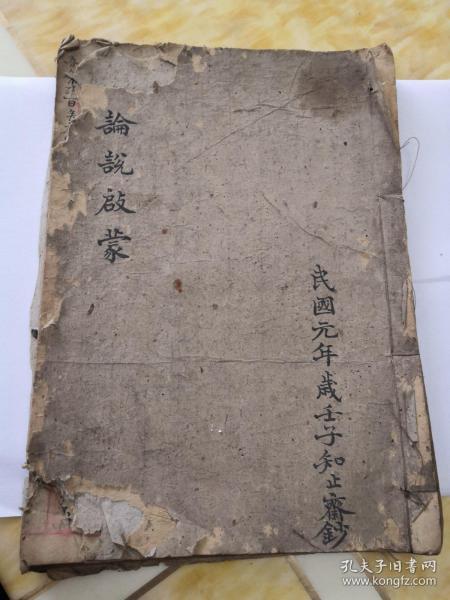 民國元年歲壬子知止齋鈔
論說啟蒙
孔夫子旧书网
www.kongfz.com